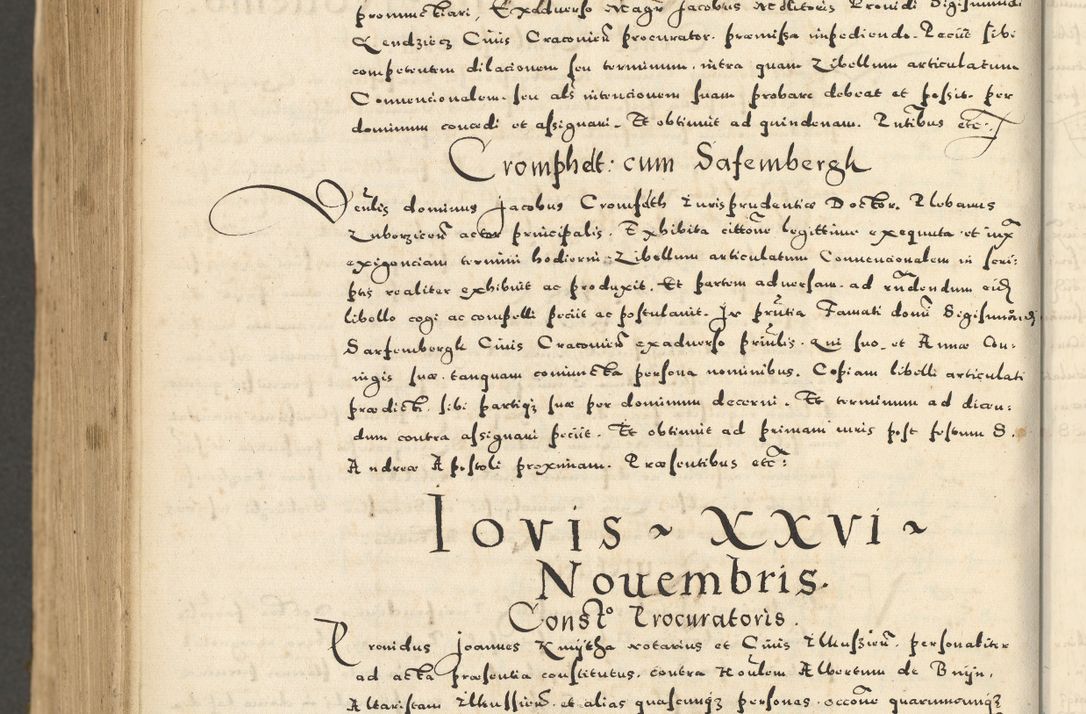 pronunctiari, Exadverso Magr Jacobus Molitoris Providi Sigismundi
Lendziecz Civis Cracovien procurator. præmissa impediendo. Peciit sibi
competentem dilacionem seu terminum. intra quam Libellum articulatum
Convencionalem. seu als intencionem suam probare debeat et possit. per
dominum concedi et assignari. Et obtinuit ad quindenam. Pntibus etc:
Cromphdt: cum Safembergk
Venlis dominus Jacobus Cromfdth Iuris prudentiæ Doctor. Plebanus
Luborzicen actor principalis. Exhibita cittone legittime exequuta et iux
exigenciam termini hodierni. Libellum articulatum Convencionalem in scri:
ptis realiter exhibuit ac produxit. Et partem adversam. ad rndendum eid
libello cogi ac compelli peciit ac postulavit. In pntia Famati domi Sigismundi
Sarfembergk Civis Cracovien exadverso pntis. Qui suo et Annæ Con:
iugis suæ. tanquam coniuncta persona nominibus. Copiam libelli articulati
prædicti. sibi partiq; suæ per dominum decerni. Et terminum ad dicen:
dum contra assignari peciit. Et obtinuit ad primam iuris post festum S.
Andreæ Apostoli proximam. Præsentibus etc:
IOVIS ~ XXVI ~
Nouembris.
Consto Procuratoris.
Providus Joannes notarius et Civis Ilkussien. personaliter
ad acta præsentia constitutus. contra Albertum de Bnijn.
Altaristam Ilkussien. et alias quascunq; personas. occone quarumcunq;